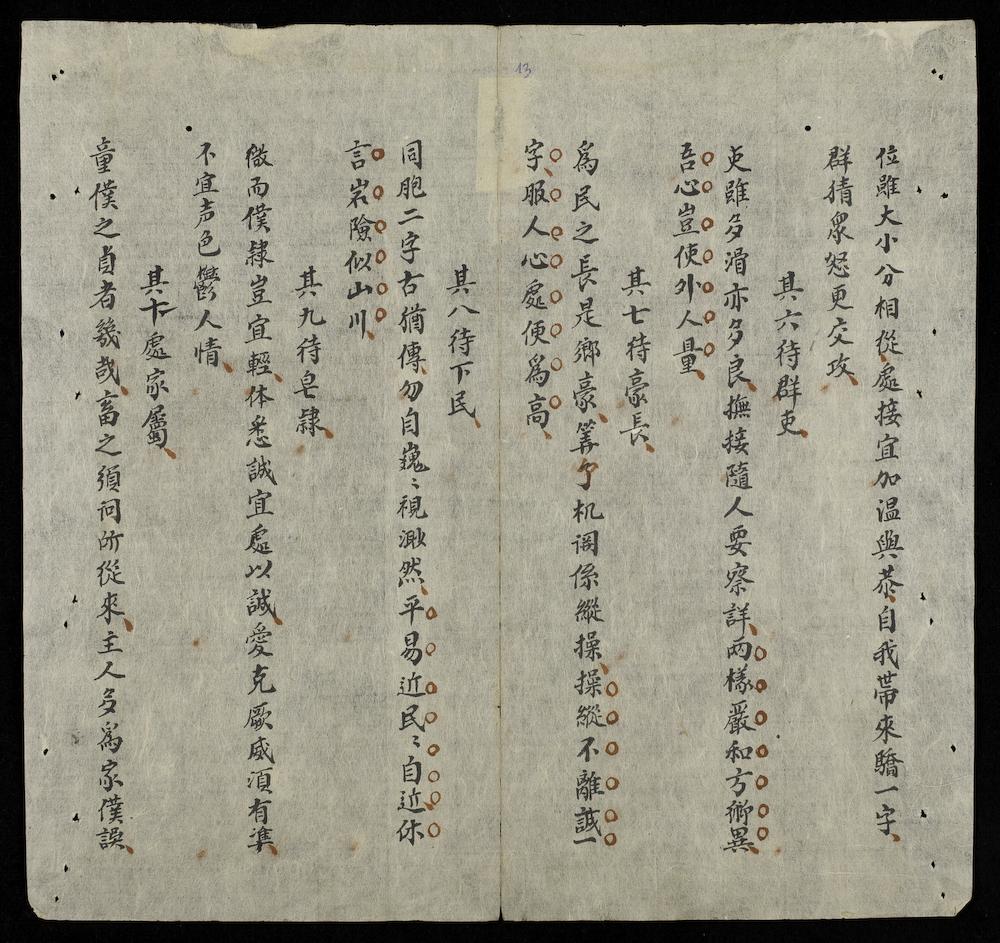 13
位雖大小分相從處接宜加温與恭自我帶來驕一字
群猜衆怒更交攻
其六待群吏
吏雖多滑亦多良撫接隨人要察詳兩樣嚴和方御異
吾心豈使外人量
其七待豪長
爲民之長是鄉豪筭了机関係縱操操縱不離誠一
字服人心處便爲高
其八待下民
同胞二字古猶傳勿自巍〻視渺然平易近民〻自近休
言岩險似山川
其九待皂隷
微而僕隷豈宜輕体悉誠宜處以誠愛克厥威須有準
不宜声色鬱人情
其十處家屬
童僕之貞者幾哉畜之須问所從來主人多爲家僕誤